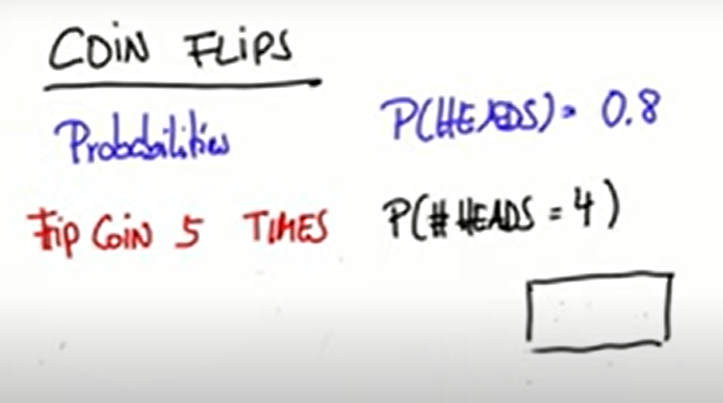 COIN FLIPS
Probabilities P(HEADS) = 0.8
Flip COIN 5 TIMES P(# HEADS = 4)